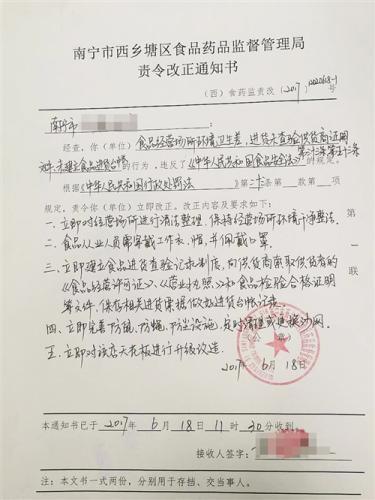 南宁市西乡塘区食品药品监督管理局
责令改正通知书
（西）食药监责改〔2017〕
南宁市
经查，你（单位）食品经营场所环境卫生差，进货未查验供货商证明
文件，未建立食品进货台帐的行为，违反了《中华人民共和国食品安全法》第三十三条第五十三条的规定。
根据《中华人民共和国行政处罚法》第二十三条第 款第 项
规定，责令你（单位）立即改正。改正内容及要求如下：
一、立即对经营场所进行清洁整理，保持经营场所环境干净整洁。
二、食品从业人员需穿戴工作衣、帽，并佩戴口罩。
三、立即建立食品进货查验记录制度，向供货商索取供货商的
《食品经营许可证》、《营业执照》和食品检验合格证明
等文件，保存相关进货票据做好进货台帐记录。
四、立即完善防鼠、防蝇、防尘设施，及时清理或更换沙网。
五、立即对该店天花板进行升级改造。
（公 章）
2017年6月18日
第一联
本通知书已于2017年6月18日11时30分收到。
接收人签字：
注：本文书一式两份，分别用于存档、交当事人。